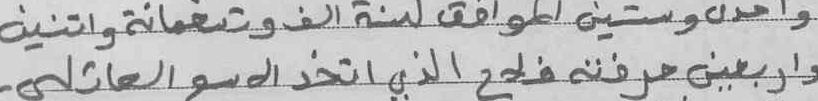 واحد وستين الموافق لسنة الف وتسعمائة واتنين
واربعين حرفته فلاح الذي اتخذ الاسم العائلي